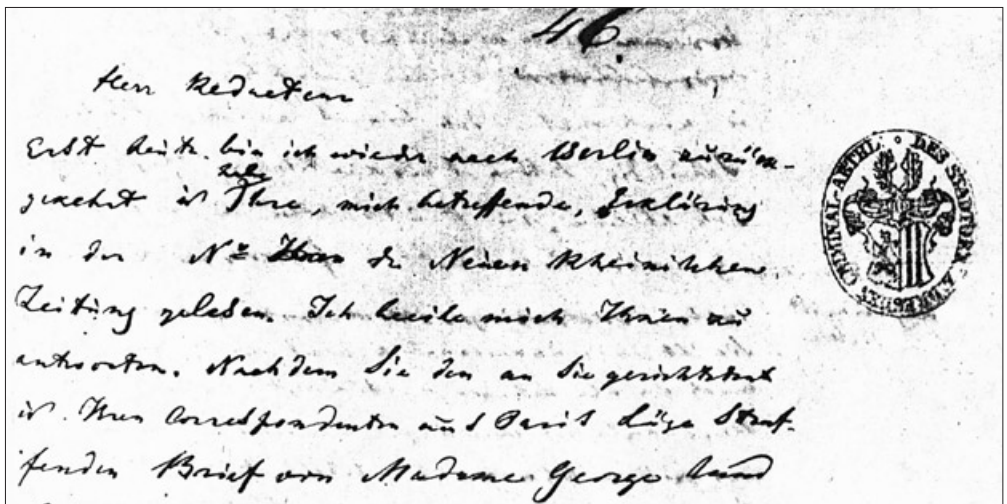 46.
Herr Redacteur
Erst heute bin ich wieder nach Berlin zurück-
gekehrt u habe Ihre, mich betreffende, Erklärung
in der No der Neuen Rheinischen
Zeitung gelesen. Ich beeile mich Ihnen zu
antworten. Nachdem Sie den an Sie gerichteten
u. Ihren Correspondenten aus Paris Lüge stra-
fenden Brief von Madame George Sand
CRIMINAL-ABTHL. DES STADTGER. Z. DRESDEN